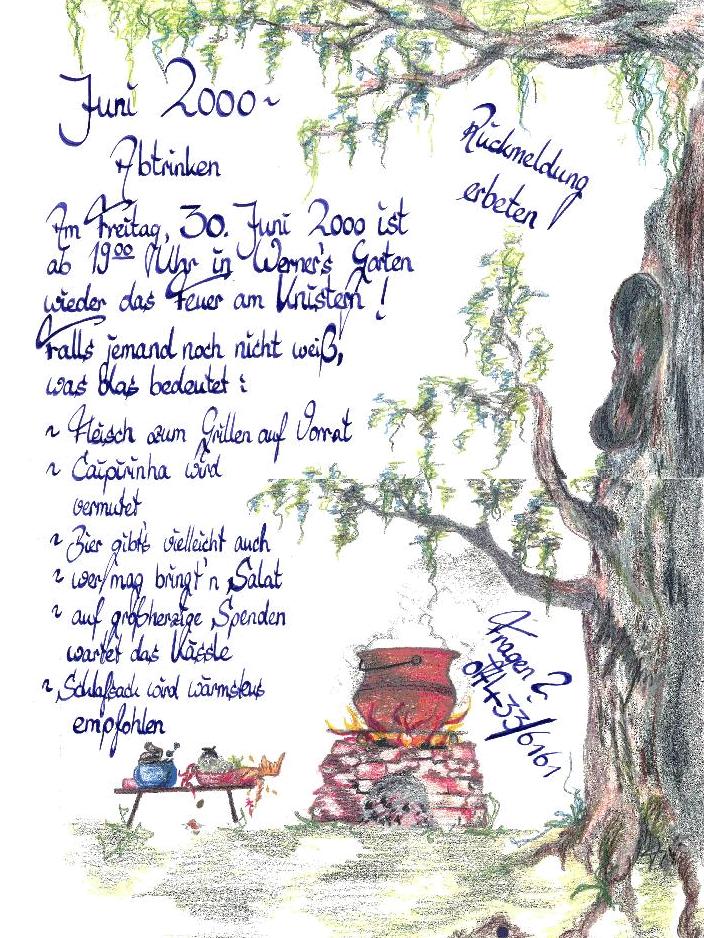 Juni 2000~
Abtrinken
Rückmeldung
erbeten
Am Freitag, 30. Juni 2000 ist
ab 19⁰⁰ Uhr in Werner's Garten
wieder das Feuer am Knistern !
Falls jemand noch nicht weiß,
was das bedeutet :
~ Fleisch zum Grillen auf Vorrat
~ Caipirinha wird
vermutet
~ Bier gibt's vielleicht auch
~ wer mag bringt 'n Salat
~ auf großherzige Spenden
wartet das Kässle
~ Schlafsack wird wärmstens
empfohlen
Fragen?
07433/6161